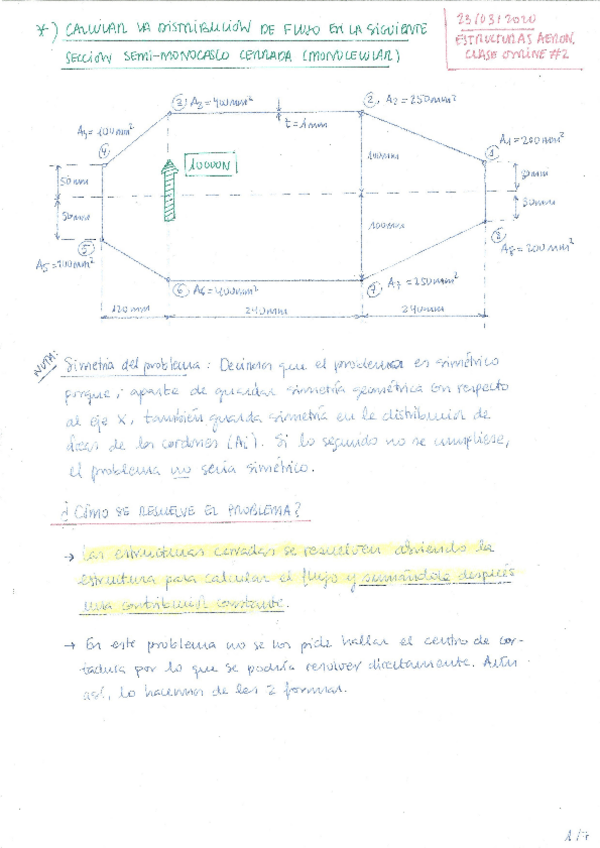 *) CALCULAR LA DISTRIBUCIÓN DE FLUJO EN LA SIGUIENTE
SECCIÓN SEMI-MONOCASCO CERRADA (MONOCELULAR)
23/03/2020
ESTRUCTURAS AERON.
CLASE ONLINE #2
3 A3 = 400mm²
2 A2 = 250mm²
A4 = 100mm²
t = 1mm
1 A1 = 200mm²
4
10000N
100mm
50mm
30mm
50mm
100mm
30mm
5
8
A5 = 100mm²
A8 = 200mm²
6 A6 = 400mm²
7 A7 = 250mm²
120mm
240mm
240mm
NOTA: Simetría del problema: Decimos que el problema es simétrico
porque, aparte de guardar simetría geométrica con respecto
al eje X, también guarda simetría en la distribución de
áreas de los cordones (Ai). Si lo segundo no se cumpliese,
el problema no sería simétrico.
¿CÓMO SE RESUELVE EL PROBLEMA?
→ Las estructuras cerradas se resuelven abriendo la
estructura para calcular el flujo y sumándole después
una contribución constante.
→ En este problema no se nos pide hallar el centro de cor-
tadura por lo que se podría resolver directamente. Aún
así, lo hacemos de las 2 formas.
1/7